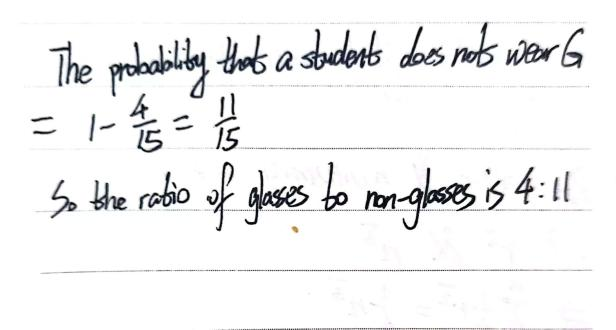 The probability that a students does nots wear G
= 1 - 4/15 = 11/15
So the ratio of glasses to non-glasses is 4:11